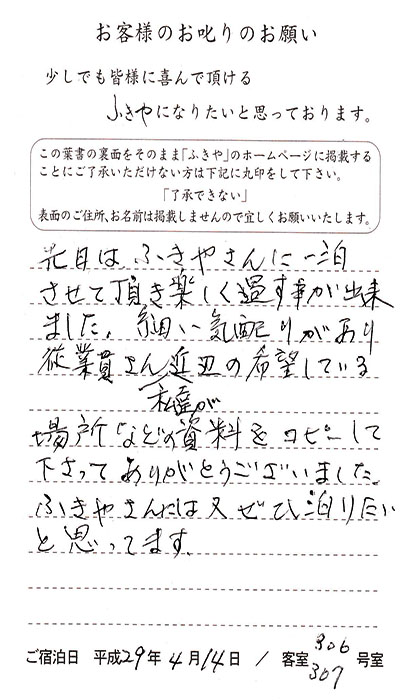 お客様のお叱りのお願い
少しでも皆様に喜んで頂ける
ふきやになりたいと思っております。
この葉書の裏面をそのまま「ふきや」のホームページに掲載する
ことにご了承いただけない方は下記に丸印をして下さい。
「了承できない」
表面のご住所、お名前は掲載しませんので宜しくお願いいたします。
先日は、ふきやさんに一泊
させて頂き楽しく過す事が出来
ました。細い気配りがあり
従業員さん近辺の希望している
私達が
場所などの資料をコピーして
下さってありがとうございました。
ふきやさんには又ぜひ泊りたい
と思ってます。
ご宿泊日 平成29年4月14日 / 客室 306 307 号室